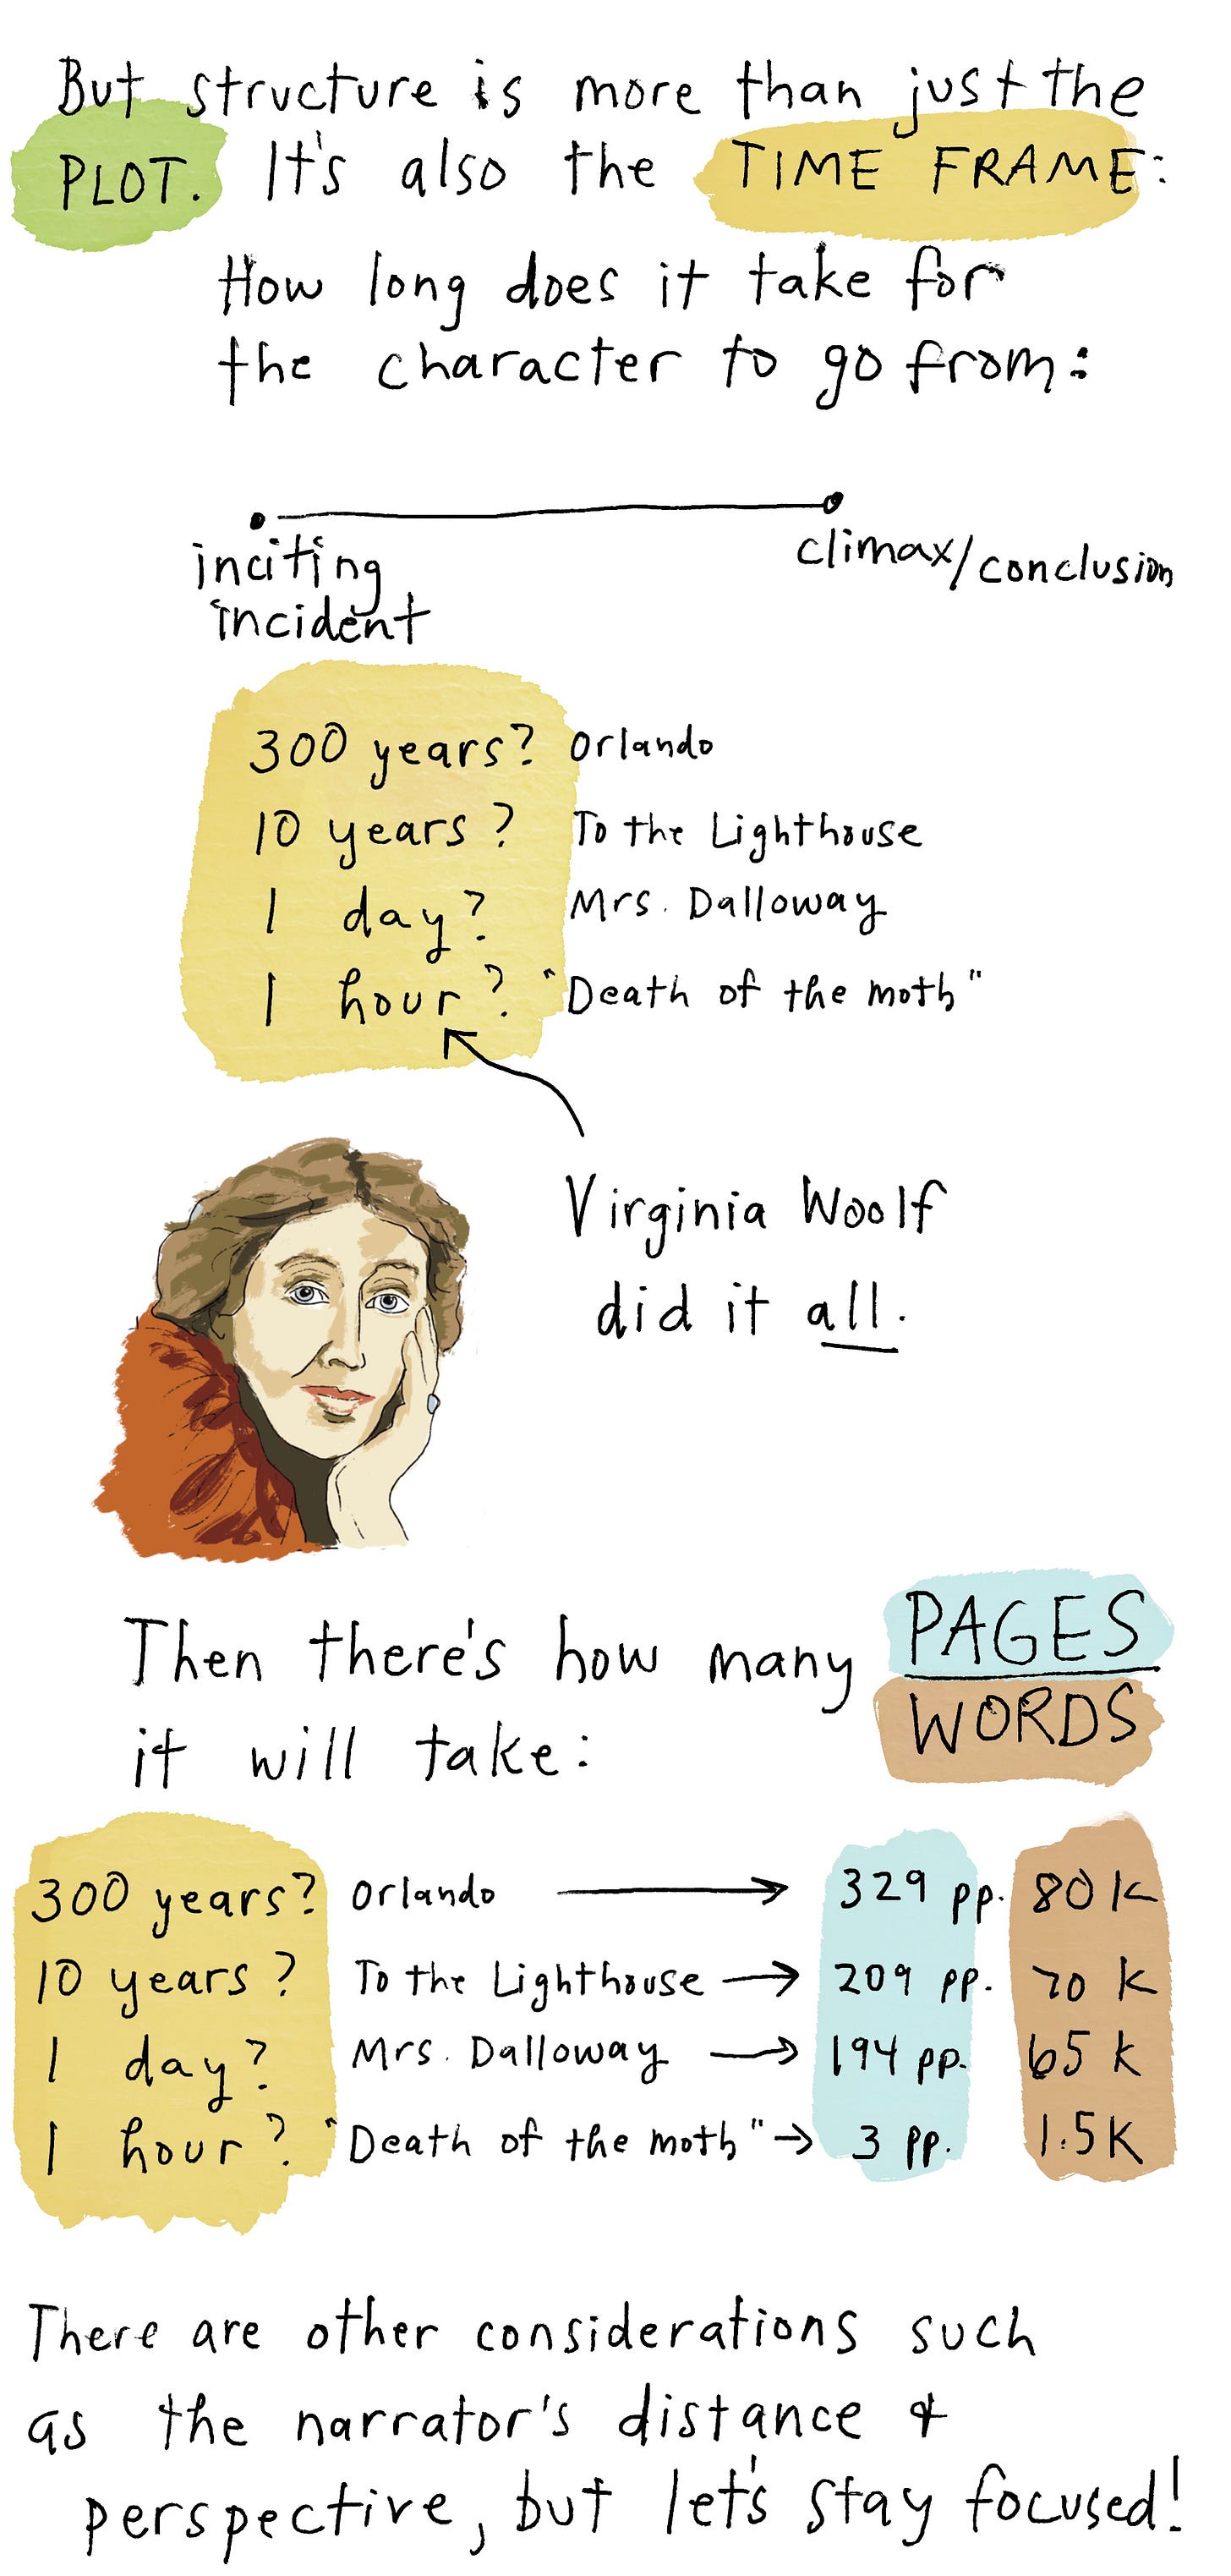 But structure is more than just the
PLOT. It's also the TIME FRAME:
How long does it take for
the character to go from:
inciting
incident
climax/conclusion
300 years? Orlando
10 years? To the Lighthouse
1 day? Mrs. Dalloway
1 hour? "Death of the moth"
Virginia Woolf
did it all.
Then there's how many PAGES
WORDS
it will take:
300 years? Orlando 329 pp. 80K
10 years? To the Lighthouse 209 pp. 70K
1 day? Mrs. Dalloway 194 pp. 65K
1 hour? "Death of the moth" 3 pp. 1.5K
There are other considerations such
as the narrator's distance &
perspective, but let's stay focused!